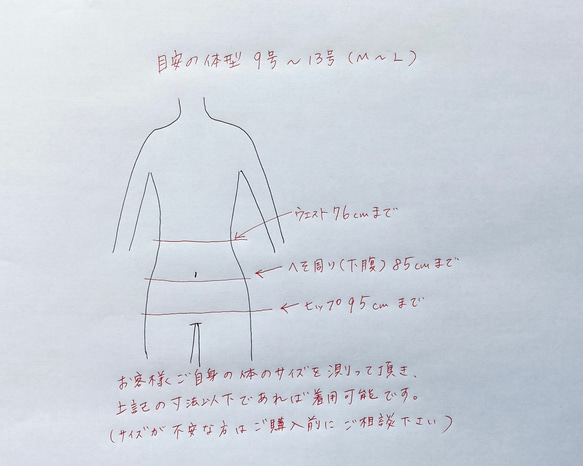 目安の体型 9号〜13号(M〜L)
ウェスト76cmまで
へそ周り(下腹)85cmまで
ヒップ95cmまで
お客様ご自身の体のサイズを測って頂き、
上記の寸法以下であれば着用可能です。
(サイズが不安な方はご購入前にご相談下さい)